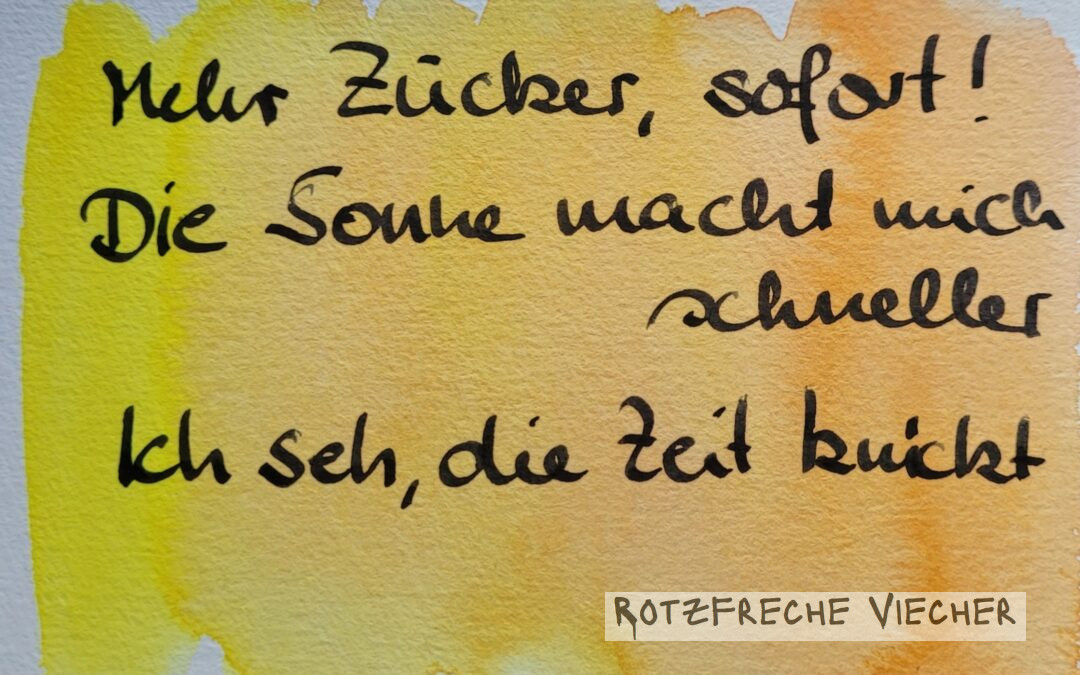 Mehr Zucker, sofort!
Die Sonne macht mich
schneller
Ich seh, die Zeit knickt
ROTZFRECHE VIECHER